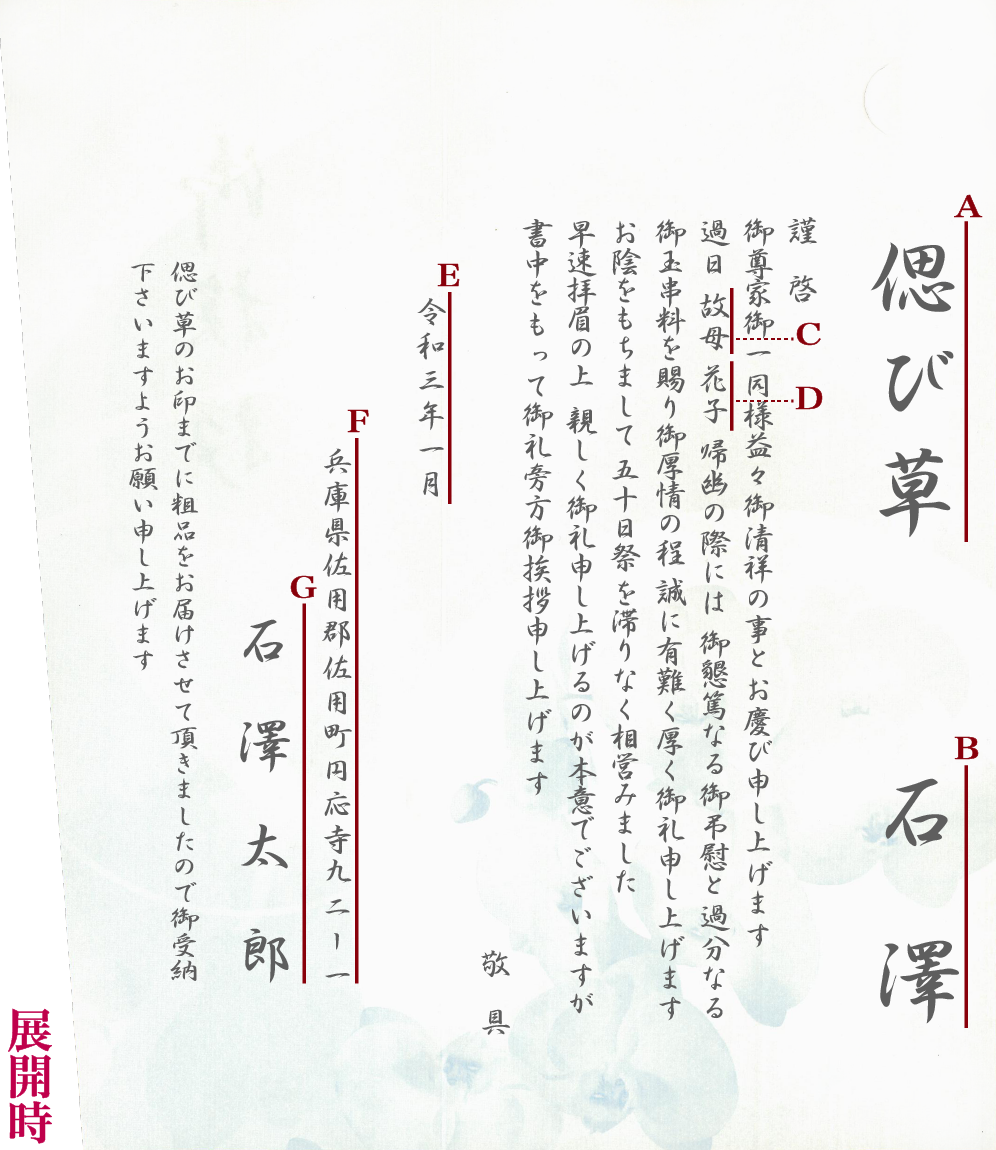 A
偲び草
B
石澤
謹啓
御尊家御一同様益々御清祥の事とお慶び申し上げます
C
D
過日 故母 花子 帰幽の際には 御懇篤なる御弔慰と過分なる
御玉串料を賜り御厚情の程 誠に有難く厚く御礼申し上げます
お陰をもちまして 五十日祭を滞りなく相営みました
早速拝眉の上 親しく御礼申し上げるのが本意でございますが
書中をもって御礼旁方御挨拶申し上げます
敬具
E
令和三年一月
F
兵庫県佐用郡佐用町円応寺九二ー一
G
石澤太郎
偲び草のお印までに粗品をお届けさせて頂きましたので御受納
下さいますようお願い申し上げます
展開時